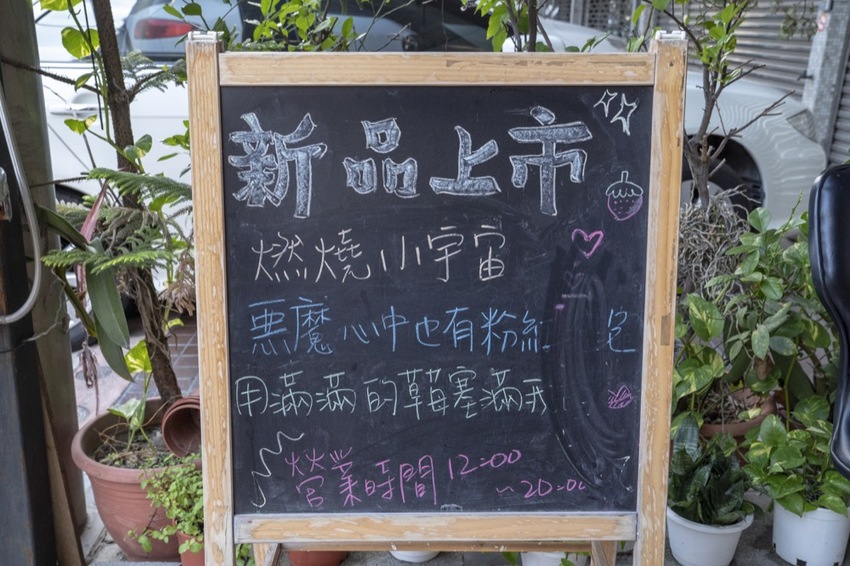 新品上市
燃燒小宇宙
悪魔心中也有粉紅 宅
用滿滿的草莓塞滿我
營業時間 12:00
~20:00